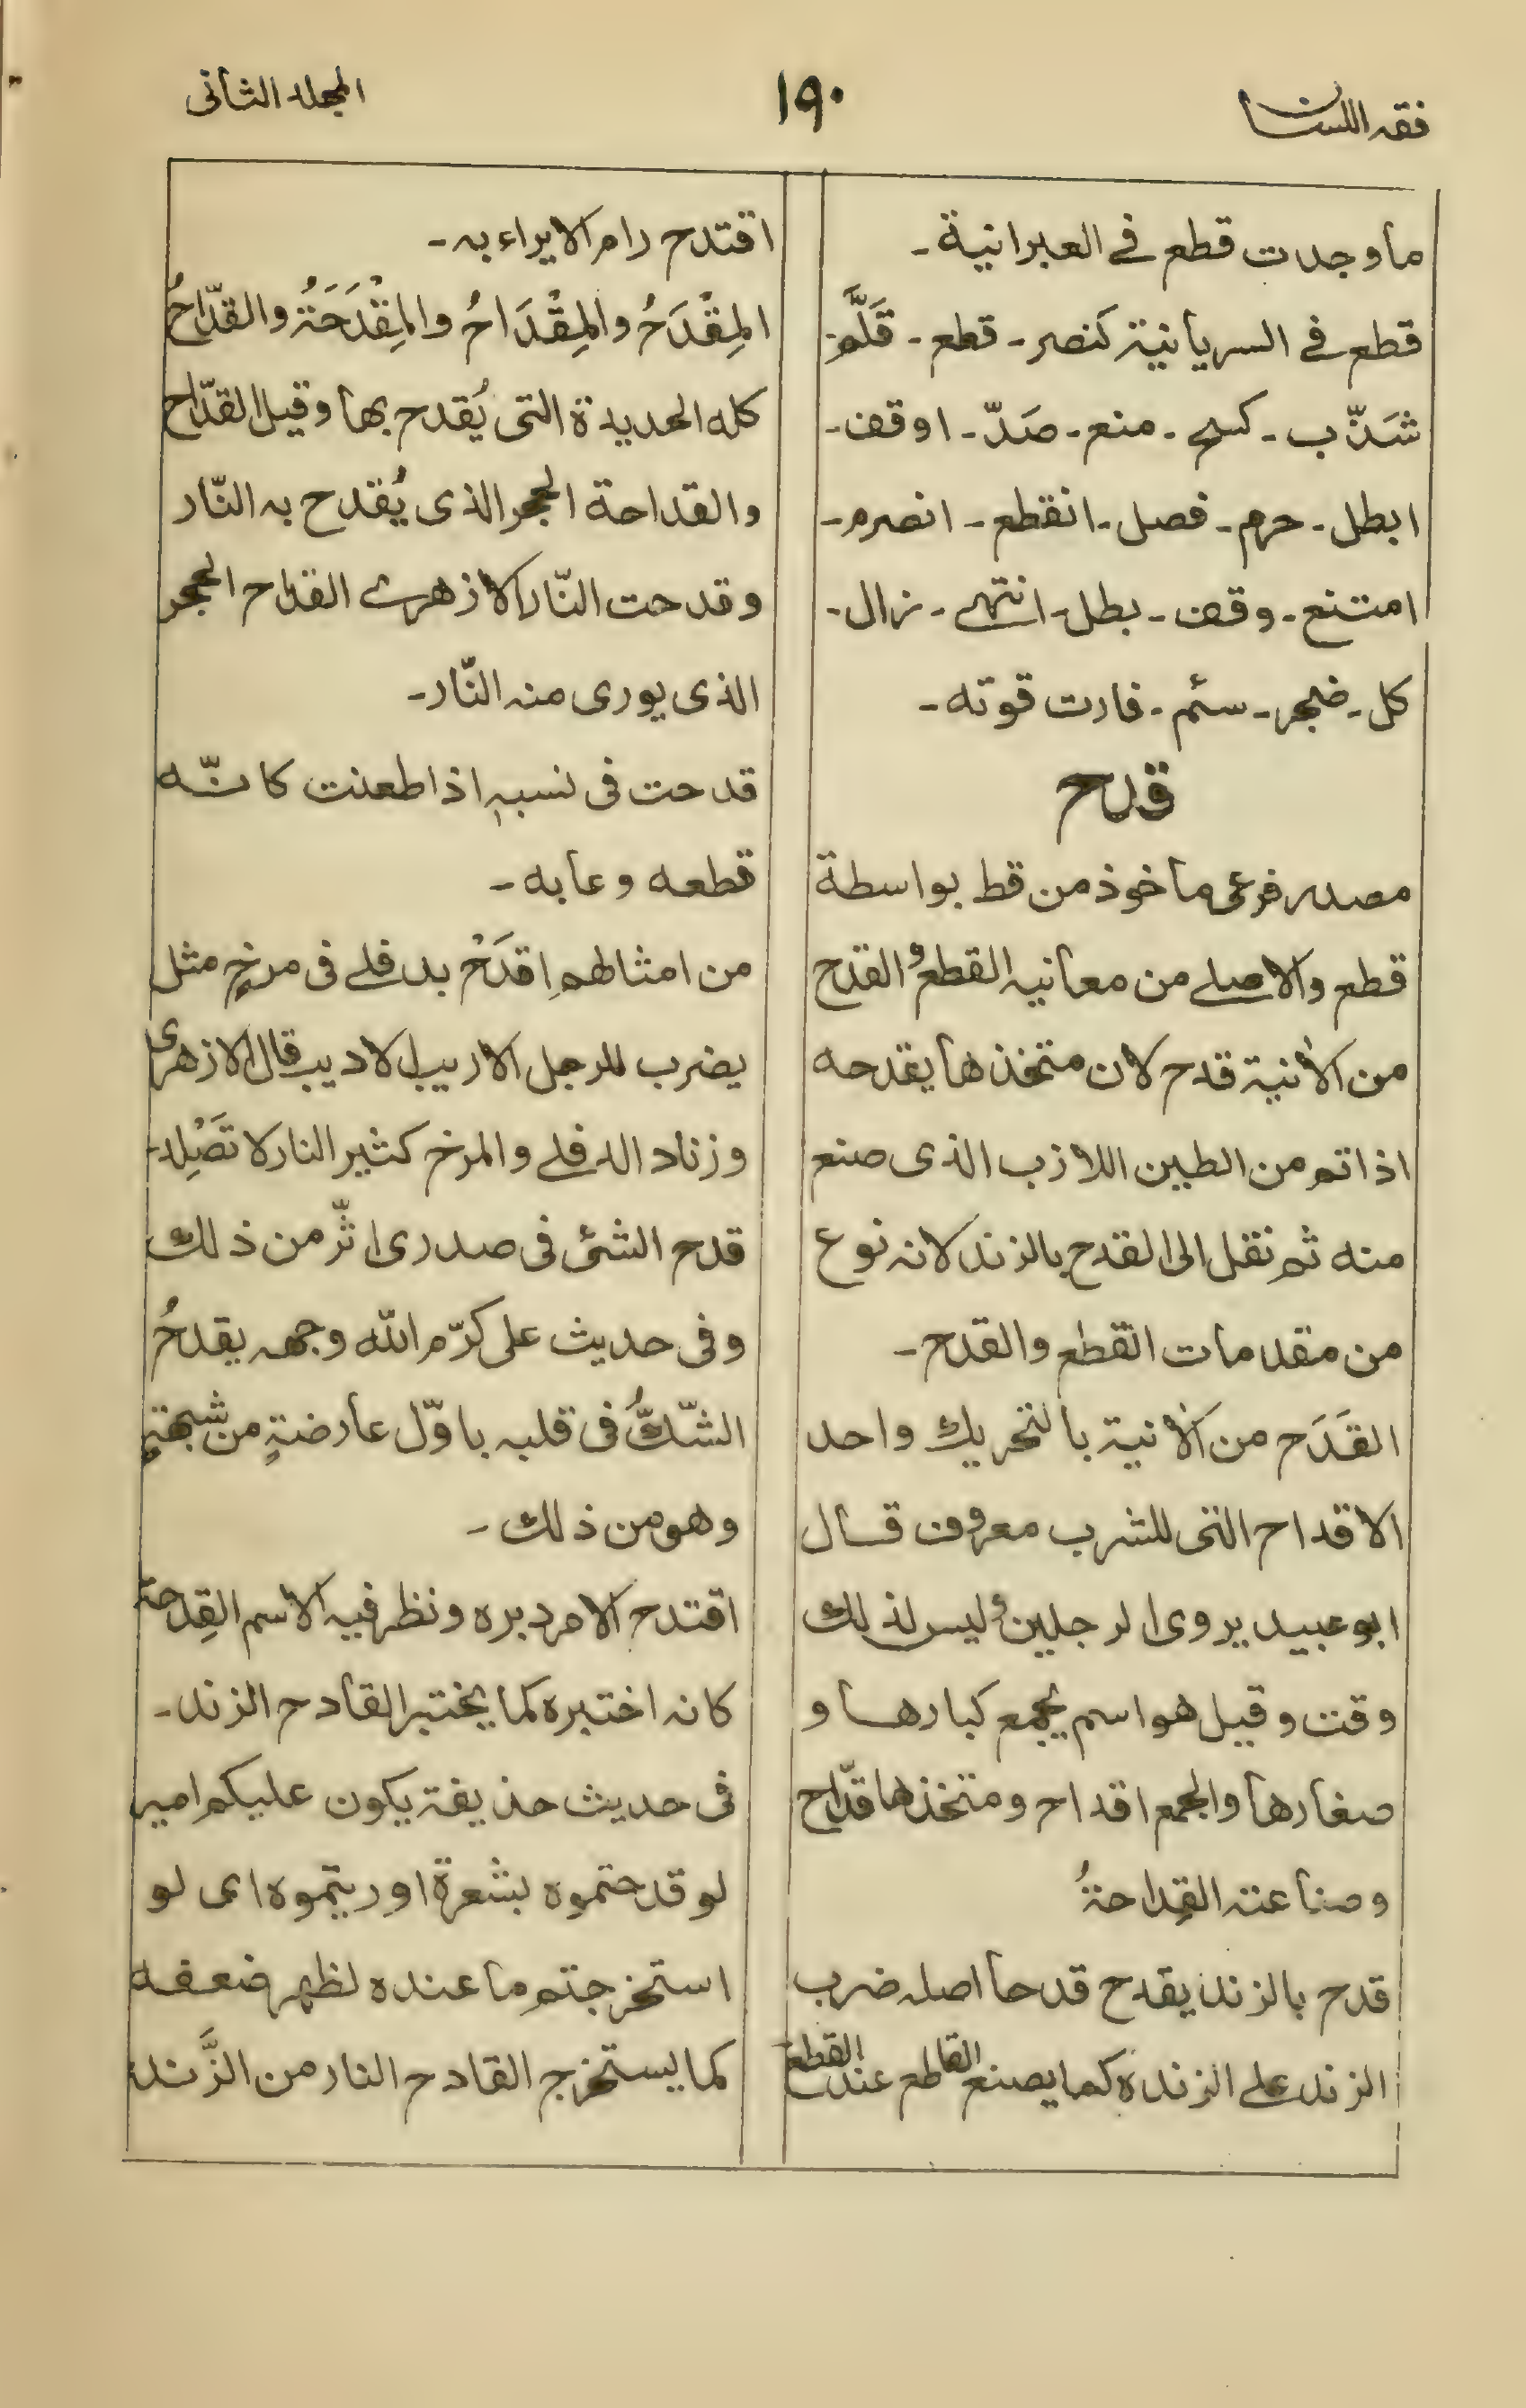 فقه اللسان
١٩٠
المجلد الثانى
ما وجدت قطع فى العبرانية -
قطع فى السريانية كنصر - قطع - قَلَّمَ
شَذّب - كسح - منع - صَدّ - اوقف -
ابطل - حرم - فصل - انقطع - انصرم -
امتنع - وقف - بطل - انتهى - زال -
كل - ضجر - سئم - فارت قوته -
قدح
مصدر فرعى ماخوذ من قط بواسطة
قطع والاصلى من معانيه القطع و القدح
من الآنية قدح لان متخذها يقدحه
اذا تم من الطين اللازب الذى صنع
منه ثم نقل الى القدح بالزند لانه نوع
من مقدمات القطع والقدح -
القَدَح من الآنية بالتحريك واحد
الاقداح التى للشرب معروف قال
ابو عبيد يروى الرجلين و ليس لذلك
وقت وقيل هو اسم يجمع كبارها و
صغارها والجمع اقداح ومتخذها قدّاح
وصناعته القِداحةُ
قدح بالزند يقدح قدحا اصله ضرب
الزند على الزنده كما يصنع القاطع عند القطع
اقتدح رام الايراء به -
المِقْدَحُ والمِقْدَاحُ والمِقْدَحَةُ والقدّاحُ
كله الحديدة التى يُقدح بها وقيل القدّاح
والقداحة الحجر الذى يُقدح به النّار
وقدحت النّار الازهرى القدّاح الحجر
الذى يورى منه النّار -
قدحت فى نسبهٖ اذا طعنت كانّه
قطعه وعابه -
من امثالهم اِقدَحْ بدفلى فى مرخٍ مثل
يضرب للرجل الاريب الاديب قال الازهرى
وزناد الدفلى والمرخ كثير النار لا تَصْلِد -
قدح الشئ فى صدرى اثّر من ذلك
وفى حديث على كرّم الله وجهه يقدحُ
الشّكُّ فى قلبه باوّل عارضةٍ من شبهةٍ
وهو من ذلك -
اقتدح الامر دبره ونظر فيه الاسم القِدحة
كانه اختبره كما يختبر القادح الزند -
فى حديث حذيفة يكون عليكم امير
لو قدحتموه بشعرة اوريتموه اى لو
استخرجتم ما عنده لظهر ضعفه
كما يستخرج القادح النار من الزَّند